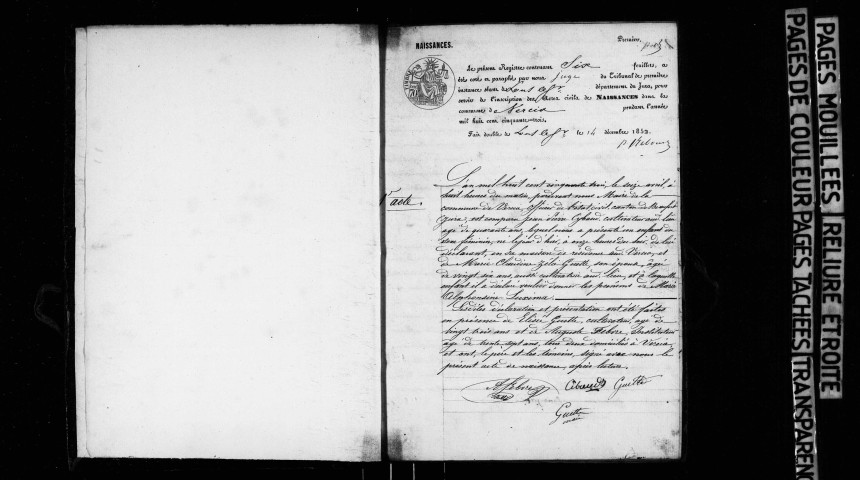 NAISSANCES.
Premier,
Le présent Registre contenant Six feuillets, a
été coté et paraphé par nous Juge du Tribunal de première
instance séant à Lons département du Jura, pour
servir de l'inscription des Actes civils de NAISSANCES dans la
commune de Vercia pendant l'année
mil huit cent cinquante-trois.
Fait double à Lons le 14 décembre 1852.
1er acte.
L'an mil huit cent cinquante trois, le seize avril, à
huit heures du matin, pardevant nous Maire de la
commune de Vercia, officier de l'état civil, canton de Beaufort
Jura, est comparu Jean Pierre cultivateur au lieu
âgé de quarante ans, lequel nous a présenté un enfant du
sexe féminin, né le jour d'hier, à onze heures du soir, de lui
déclarant, en sa maison de résidence au Vercia, et
de Marie Claudine Guette, son épouse, âgée
de vingt six ans, aussi cultivatrice au lieu, et à laquelle
enfant il a déclaré vouloir donner les prénoms de Marie
Alphonsine
Lesdites déclaration et présentation ont été faites
en présence de Elisée Guette, cultivateur, âgé de
vingt trois ans et de Auguste Febvre, Instituteur
âgé de trente sept ans, tous deux domiciliés à Vercia,
et ont, le père et les témoins, signé avec nous le
présent acte de naissance, après lecture.
A. Febvre Guette
Guette
maire
PAGES MOUILLÉES RELIURE ÉTROITE
PAGES DE COULEUR PAGES TACHÉES TRANSPARENC